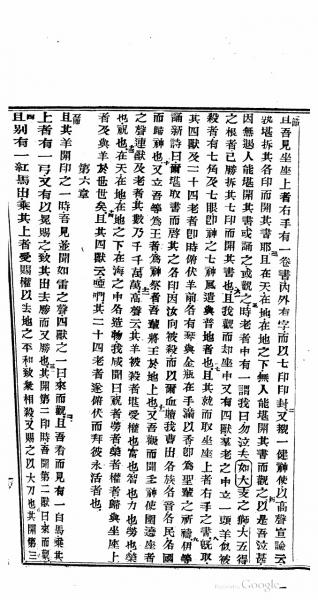 且吾見坐座上者右手有一卷書內外有字而以七印印封又覩一健神使以高聲宣論云
孰堪拆其各印而開其書耶且在天在地在地之下無人能堪開其書而觀之以是吾泣甚
因無遇人能堪開其書或誦之或觀之時老者中有一謂我曰勿泣夫如大支之獅大五得
之根者已勝拆其七印而開其書也且我觀而却座之中又有四獸羣老之中立一羔羊似被
殺者有七角及七眼卽神之七神風遣與普地者也且其就而取坐座上者右手之書旣取
其四獸及二十四老者卽時俯伏羊前各有琴與金瓶在手滿以香卽為聖輩之祈禱伊等
誦新詩曰爾堪取書而啓其之各印因汝向被殺而以爾血贖我曹出各族各音各民各國
而歸神也又立吾等為王者為神祭者吾輩將王於地上也又吾觀而聞圭神使圍遶座者
之聲連獸及老者其數乃千千萬萬高聲云其羊被殺者堪受權也富也智也力也勞也榮
也祝也在天在地在地之下在海之中各造物我咸聞曰祝者勞者榮者權者歸與坐座上
者及與羊於世世矣且其四獸云啞們其二十四老者遂俯伏而拜彼永活者也
第六章
且其羊開印之一時吾見並聞如雷之聲四獸之一曰來而觀且吾看而見有一白馬乘其
上者有一弓又有以冕賜之致其出去勝而又勝也其開第二印時吾聞第二獸曰來而觀
且別有一紅馬出乘其上者受賜權以去地之不和致衆相殺又賜之以大刀也其開第三
Google